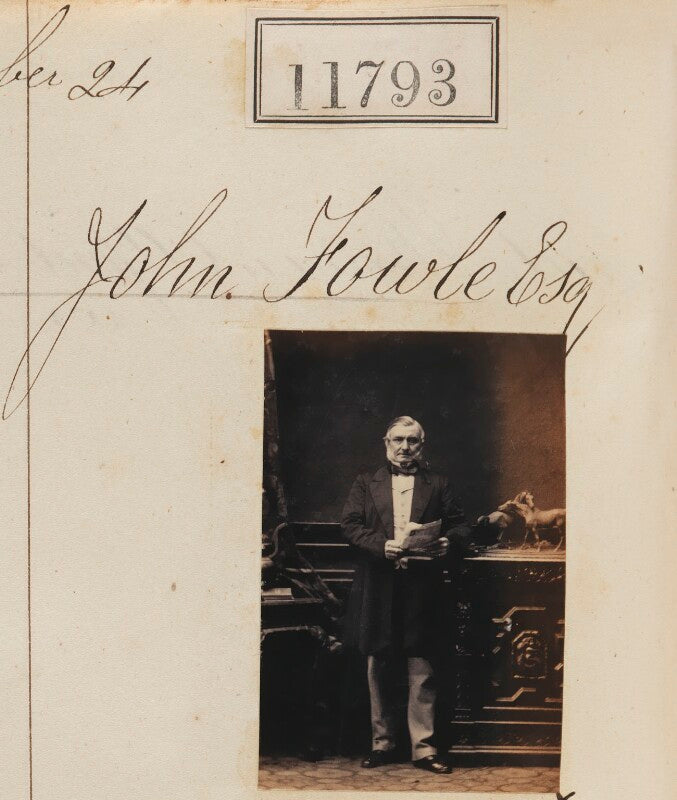 ber 24
11793
John Fowle Esq